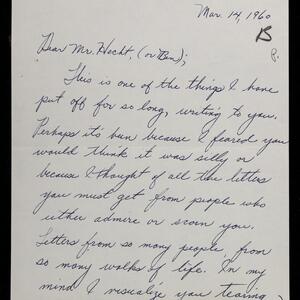 Mar. 14, 1960
B
Dear Mr. Hecht, (or Ben);
This is one of the things I have
put off for so long, writing to you.
Perhaps it's been because I feared you
would think it was silly or
because I thought of all the letters
you must get from people who
either admire or scorn you.
Letters from so many people, from
so many walks of life. In my
mind I visualize you tearing